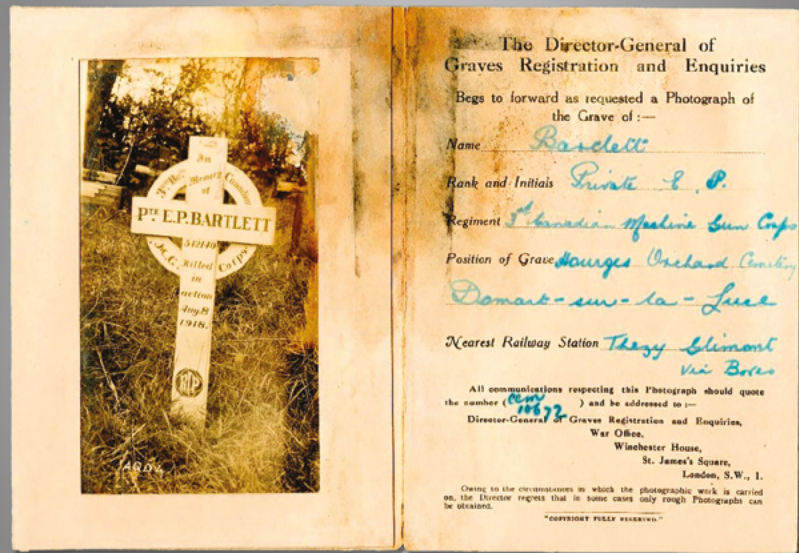 In
Memory
of
3rd Batt. Canadian
PTE E.P. BARTLETT
542140
M.G. Corps
Killed
in
action
Aug. 8
1918.
RIP
The Director-General of
Graves Registration and Enquiries
Begs to forward as requested a Photograph of
the Grave of :—
Name Bartlett
Rank and Initials Private E. P.
Regiment 3rd Canadian Machine Gun Corps
Position of Grave Hourges Orchard Cemetery
Domart-sur-la-Luce
Nearest Railway Station Thezy Glimont
via Boves
All communications respecting this Photograph should quote
the number (Cem 10672) and be addressed to :—
Director-General of Graves Registration and Enquiries,
War Office,
Winchester House,
St. James's Square,
London, S.W., 1.
Owing to the circumstances in which the photographic work is carried
on, the Director regrets that in some cases only rough Photographs can
be obtained.
"COPYRIGHT FULLY RESERVED."